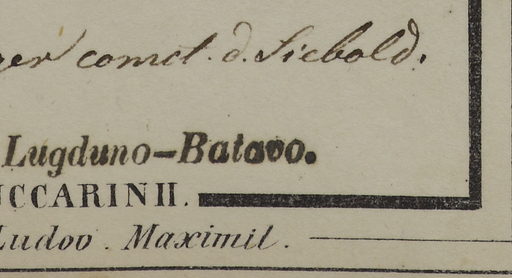 comct. d. Siebold.
Lugduno-Batavo.
CCARINII.
Ludov. Maximil.